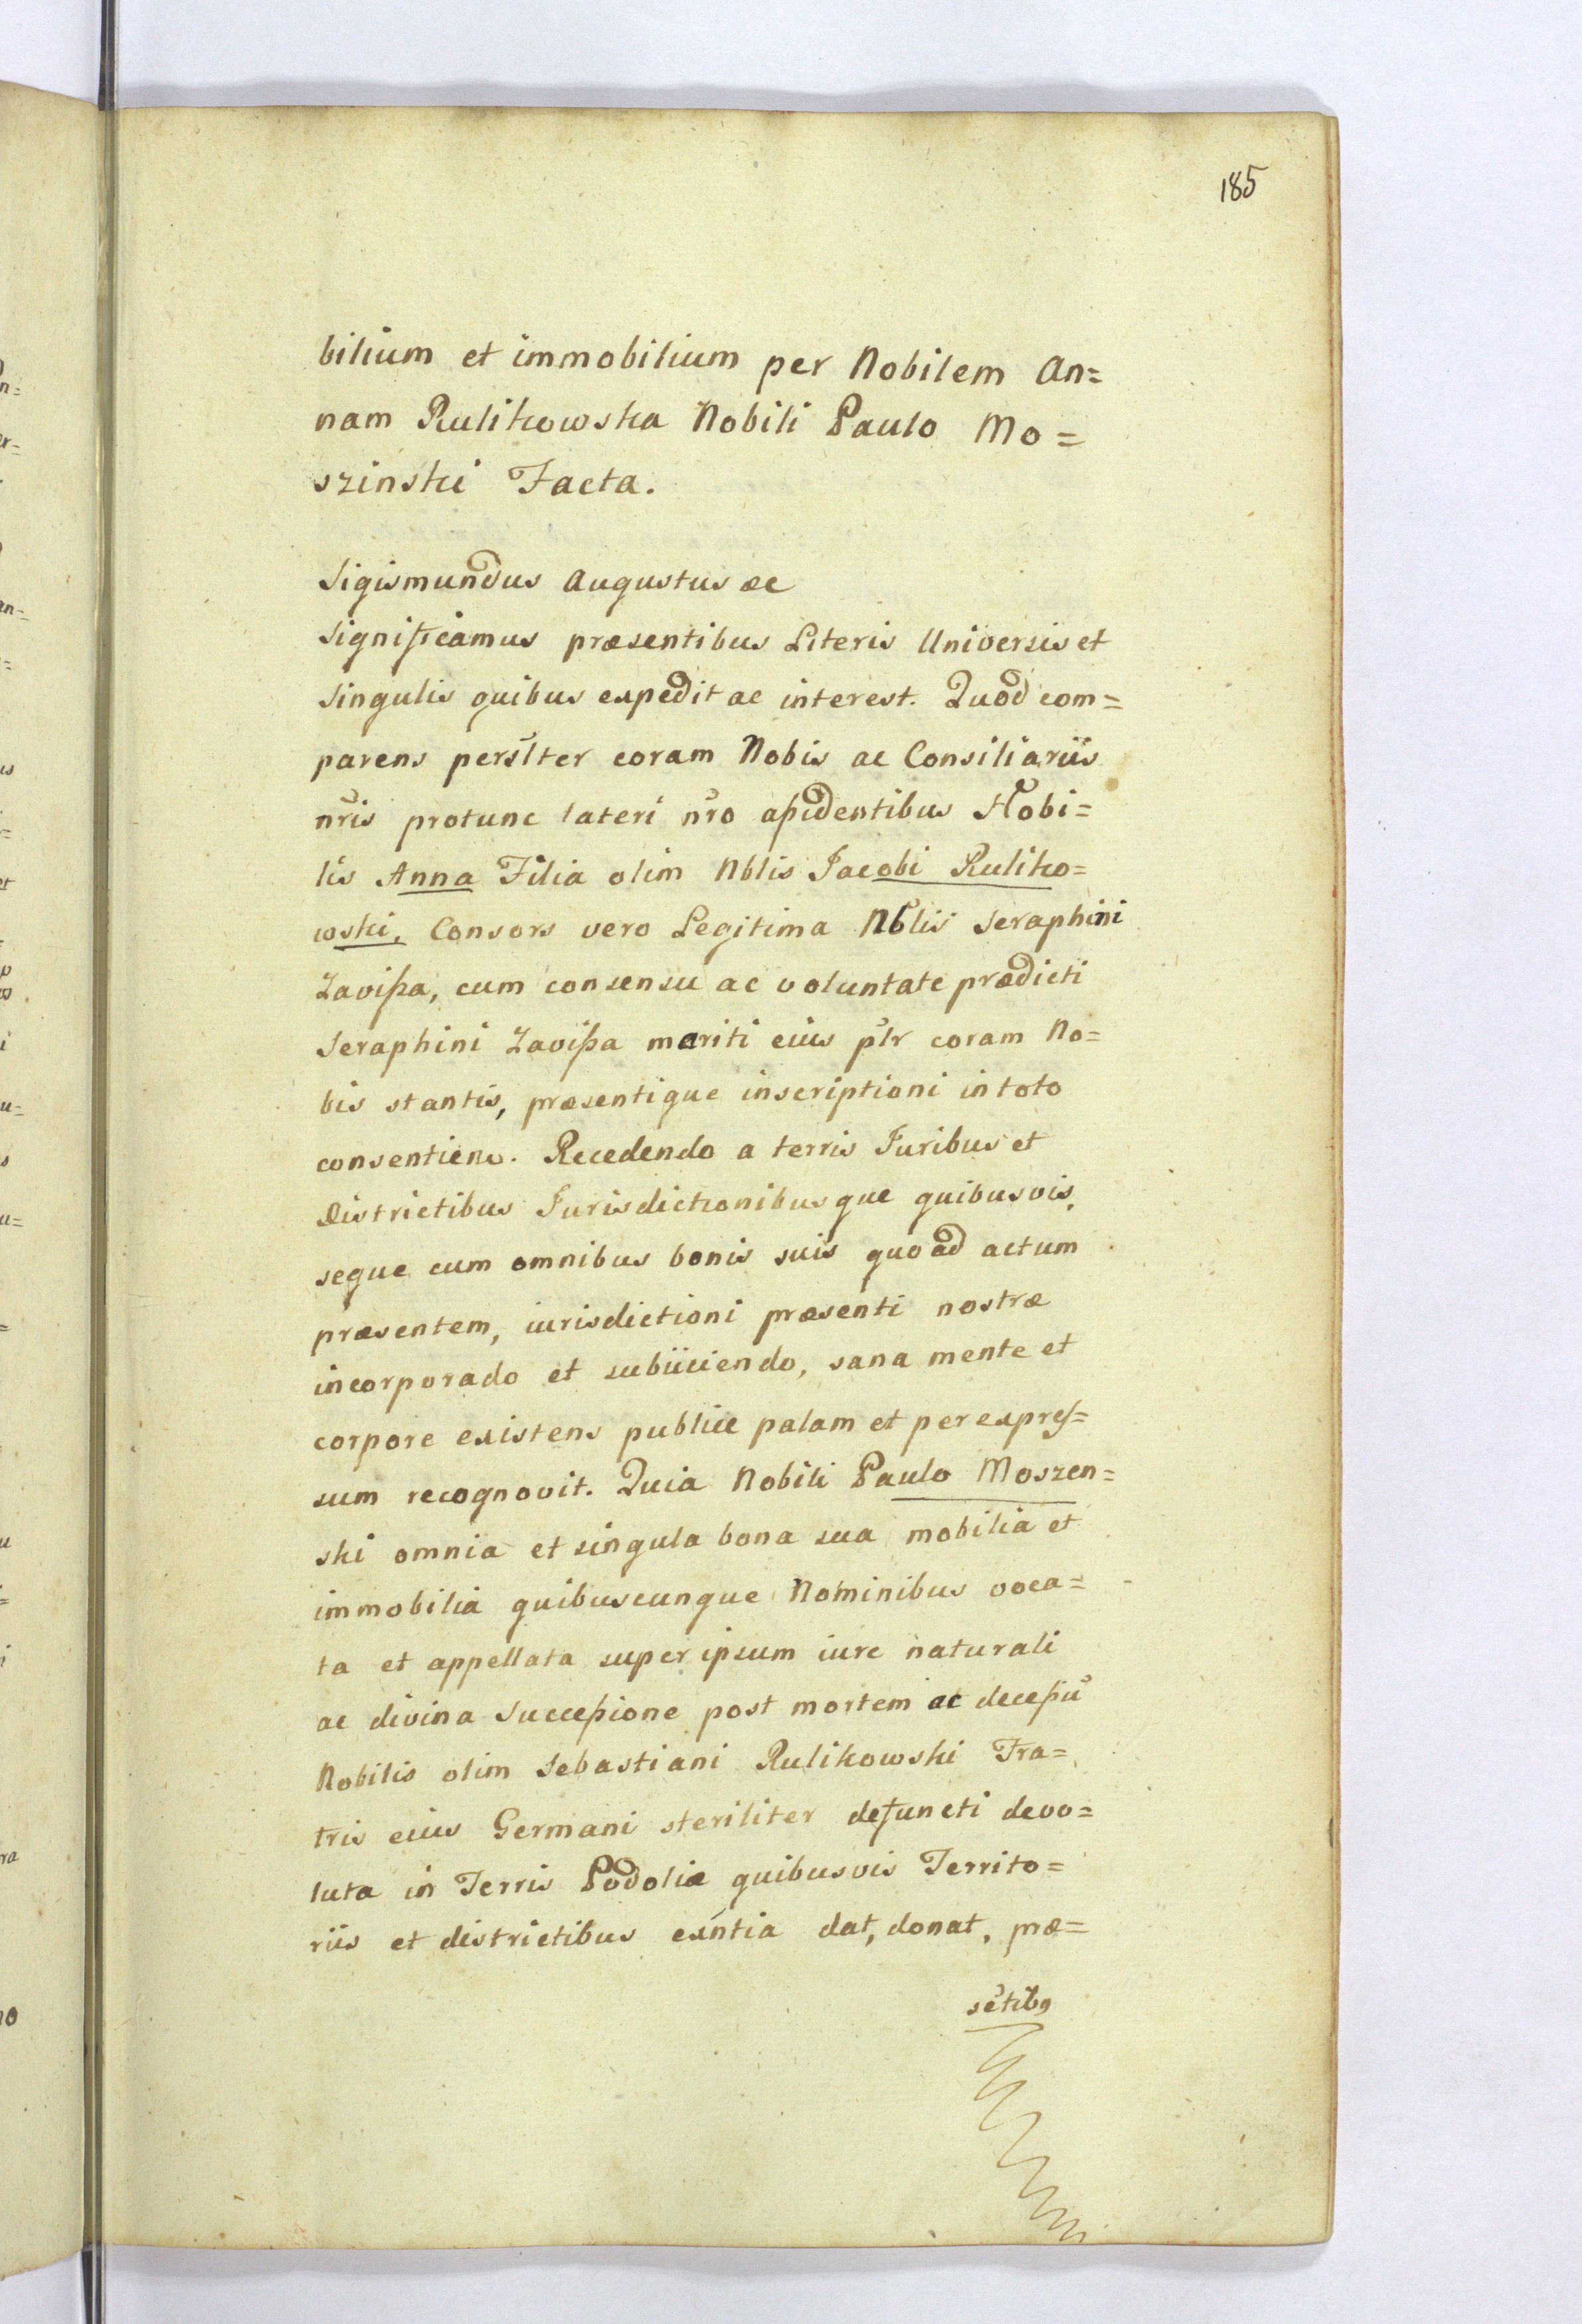 185
bilium et immobilium per Nobilem An=
nam Rulikowska Nobili Paulo Mo=
szinski Facta.
Sigismundus Augustus &c
Significamus præsentibus Literis Universis et
Singulis quibus expedit ac interest. Quod com=
parens persl̃ter coram Nobis ac Consiliariis
nr̃is protunc lateri nr̃o aßidentibus Nobi=
lis Anna Filia olim Nblis Jacobi Ruliko=
wski, Consors vero Legitima Nblis Seraphini
Zavißa, cum consensu ac voluntate prædicti
Seraphini Zavißa mariti eius pl̃r coram No=
bis stantis, præsentique inscriptioni in toto
consentiens. Recedendo a terris Juribus et
Districtibus Jurisdictionibusque quibusvis,
seque cum omnibus bonis suis quoad actum
præsentem, iurisdictioni præsenti nostræ
incorporado et subiiciendo, sana mente et
corpore existens publice palam et per expreſ=
sum recognovit. Quia Nobili Paulo Moszen=
ski omnia et singula bona sua mobilia et
immobilia quibuscunque Nominibus voca=
ta et appellata super ipsum iure naturali
ac divina Succeßione post mortem ac deceßũ
Nobilis olim Sebastiani Rulikowski Fra=
tris eius Germani steriliter defuncti devo=
luta in Terris Podoliæ quibusvis Territo=
riis et districtibus exñtia dat, donat, præ=